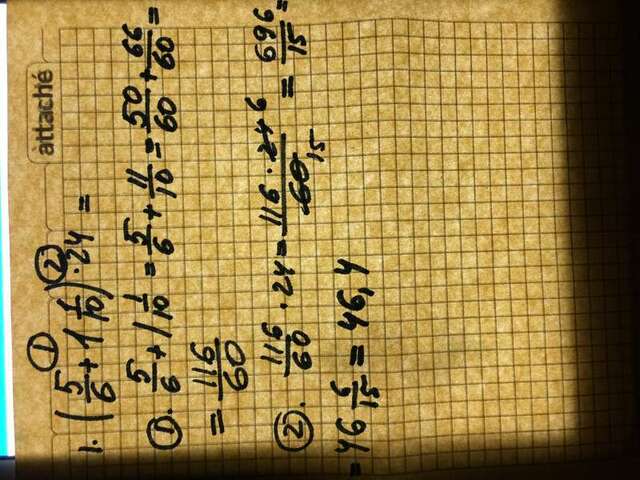 attaché
1. (5/6 + 1 1/10) · 24 =
① ②
①. 5/6 + 1 1/10 = 5/6 + 11/10 = 50/60 + 66/60 =
= 116/60
②. 116/60 · 24 = 116 · 24 6 / 60 15 = 696/15 =
= 46 6/15 = 46,4